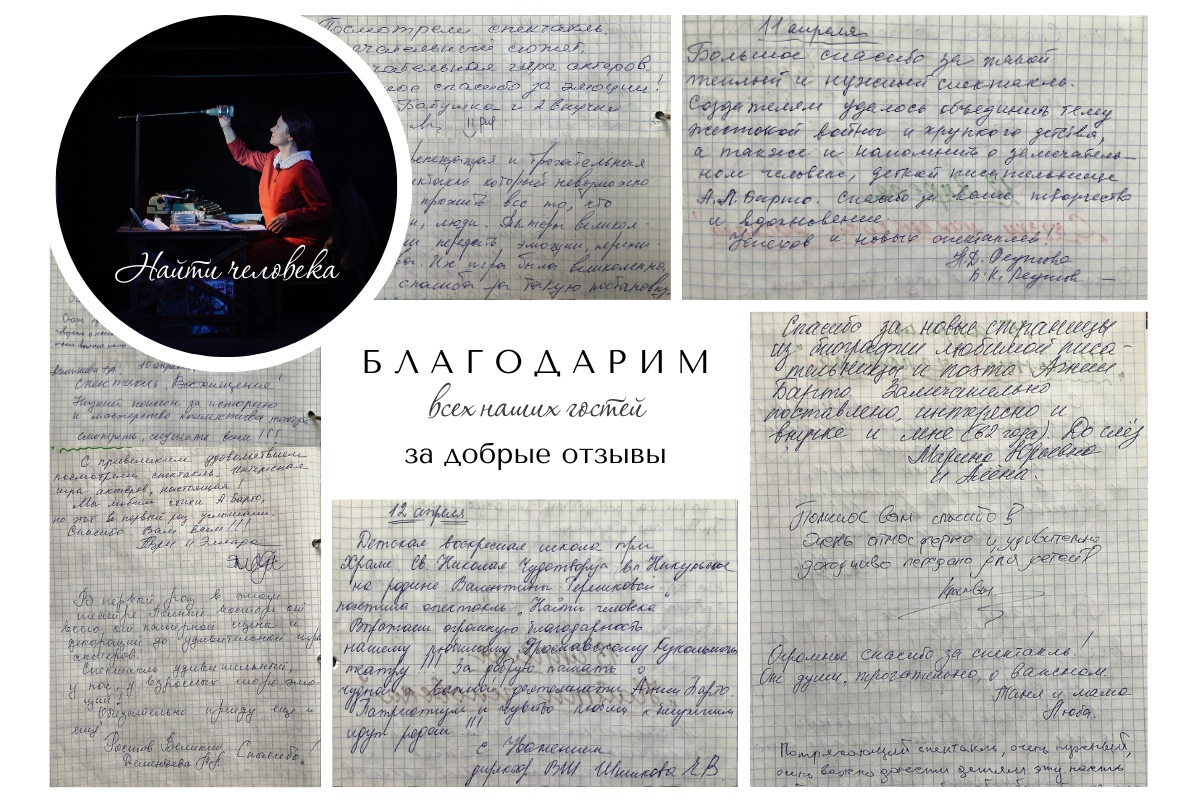 Найти человека
Посмотрели спектакль.
сюжет,
игра актеров.
спасибо за эмоции!
Бабушка и 2 внучки
и трогательная
который невозможно
прожить все то, что
люди. Актеры великол-
передать эмоции,
Их игра была великолепна,
спасибо за такую постановку
11 апреля
Большое спасибо за такой
теплый и нужный спектакль.
Создателям удалось объединить тему
жестокой войны и хрупкого детства,
а также и напомнить о замечатель-
ном человеке, детской писательнице
А.Л. Барто. Спасибо за ваше творчество
и вдохновение
Успехов и новых спектаклей!
БЛАГОДАРИМ
всех наших гостей
за добрые отзывы
10 апреля
Спектакль Восхищение!
Низкий поклон за историю
и мастерство коллектива театра
смотреть, слушать всем!!!
С превеликим удовольствием
посмотрели спектакль. Интересная
игра актёров, настоящая!
Мы любим стихи А. Барто,
но этот в первый раз услышали.
Спасибо Вам всем!!!
В первый раз в
театре. Полный восторг от
всего, от камерной сцены и
декораций до удивительной игры
актеров.
Спектакль удивительный,
у нас, у взрослых море эмо-
ций!
Обязательно приеду еще и
еще
Ростов Великий
Спасибо!
12 апреля
Детская воскресная школа при
Храме Св. Николая Чудотворца
на родине Валентины Терешковой
посетила спектакль „Найти человека"
Выражаем огромную благодарность
нашему любимому Ярославскому Кукольному
театру!!! За добрую память о
Агнии Барто.
Патриотизм и чувство любви к ближним
идут рядом!!!
с Уважением
директор ВШ
Спасибо за новые страницы
из биографии любимой писа-
тельницы и поэта Агнии
Барто. Замечательно
поставлено, интересно и
внучке и мне (62 года). До слёз
Марина Юрьевна
и Алёна.
Большое Вам спасибо!
Очень атмосферно и удивительно
доходчиво передано для детей!
Огромное спасибо за спектакль!
От души, трогательно, о важном.
Таня и мама
Люба.
Потрясающий спектакль, очень нужный,
очень важно донести детям эту часть